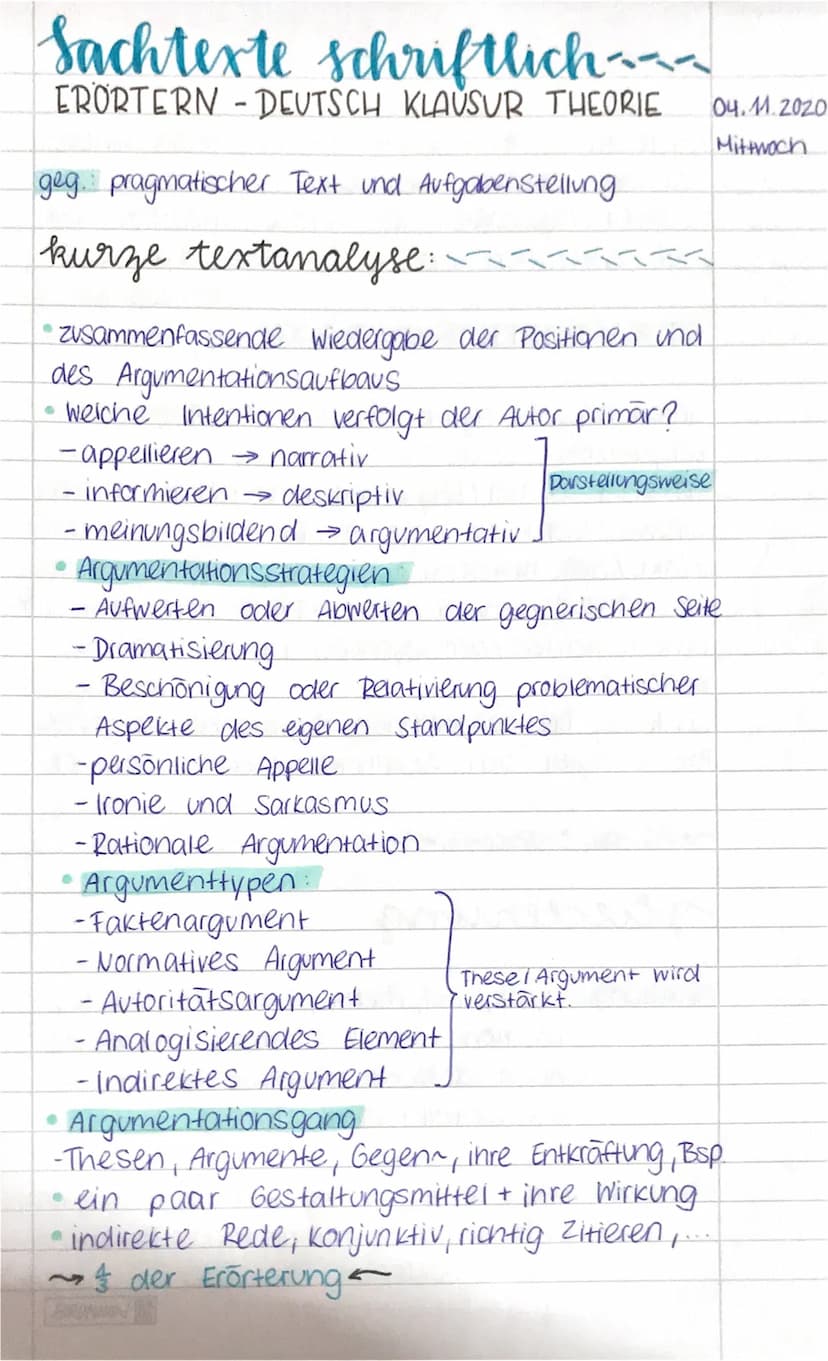 Sachtexte schriftlich
ERÖRTERN - DEUTSCH KLAUSUR THEORIE
04.11.2020
Mittwoch
geg.: pragmatischer Text und Aufgabenstellung
kurze textanalyse:
• zusammenfassende Wiedergabe der Positionen und
des Argumentationsaufbaus
• Welche Intentionen verfolgt der Autor primär?
- appellieren → narrativ
- informieren → deskriptiv
- meinungsbildend → argumentativ
Darstellungsweise
• Argumentationsstrategien:
- Aufwerten oder Abwerten der gegnerischen Seite
- Dramatisierung
- Beschönigung oder Relativierung problematischer
Aspekte des eigenen Standpunktes
- persönliche Appelle
- Ironie und Sarkasmus
- Rationale Argumentation
• Argumenttypen:
- Faktenargument
- Normatives Argument
- Autoritätsargument
- Analogisierendes Element
- Indirektes Argument
These/Argument wird
verstärkt.
• Argumentationsgang
- Thesen, Argumente, Gegen~, ihre Entkräftung, Bsp.
• ein paar Gestaltungsmittel + ihre Wirkung
• indirekte Rede, Konjunktiv, richtig Zitieren, ...
der Erörterung